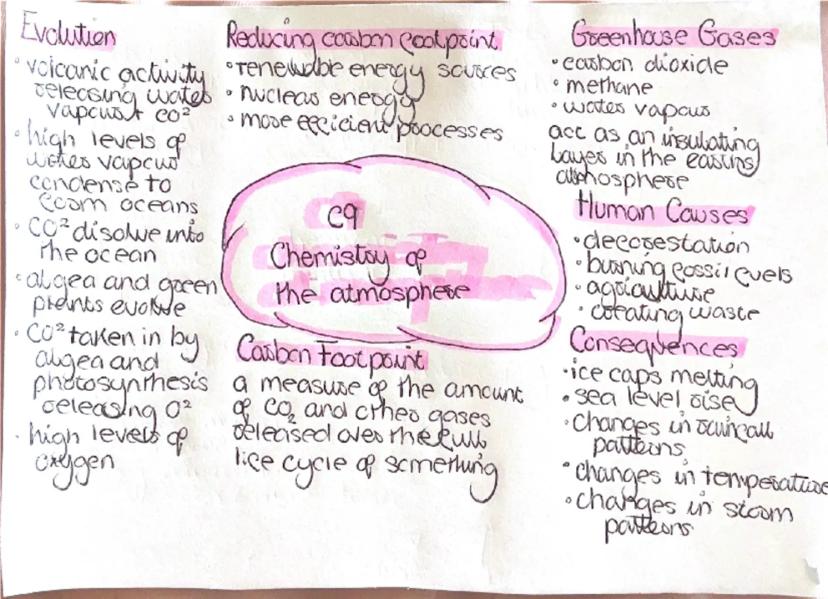 Evolution
• volcanic activity
releasing water
vapour + CO²
• high levels of
water vapour
condense to
form oceans
• CO² disolve into
the ocean
• algea and green
plants evolve
• CO² taken in by
algea and
photosynthesis
releasing O²
• high levels of
oxygen
Reducing carbon footprint
• renewable energy sources
• nuclear energy
• more efficient processes
C9
Chemistry of
the atmosphere
Carbon Footprint
a measure of the amount
of CO₂ and other gases
released over the full
life cycle of something
Greenhouse Gases
• carbon dioxide
• methane
• water vapour
act as an insulating
layer in the earths
atmosphere
Human Causes
• deforestation
• burning fossil fuels
• agriculture
• creating waste
Consequences
• ice caps melting
• sea level rise
• changes in rainfall
patterns
• changes in temperature
• changes in storm
patterns